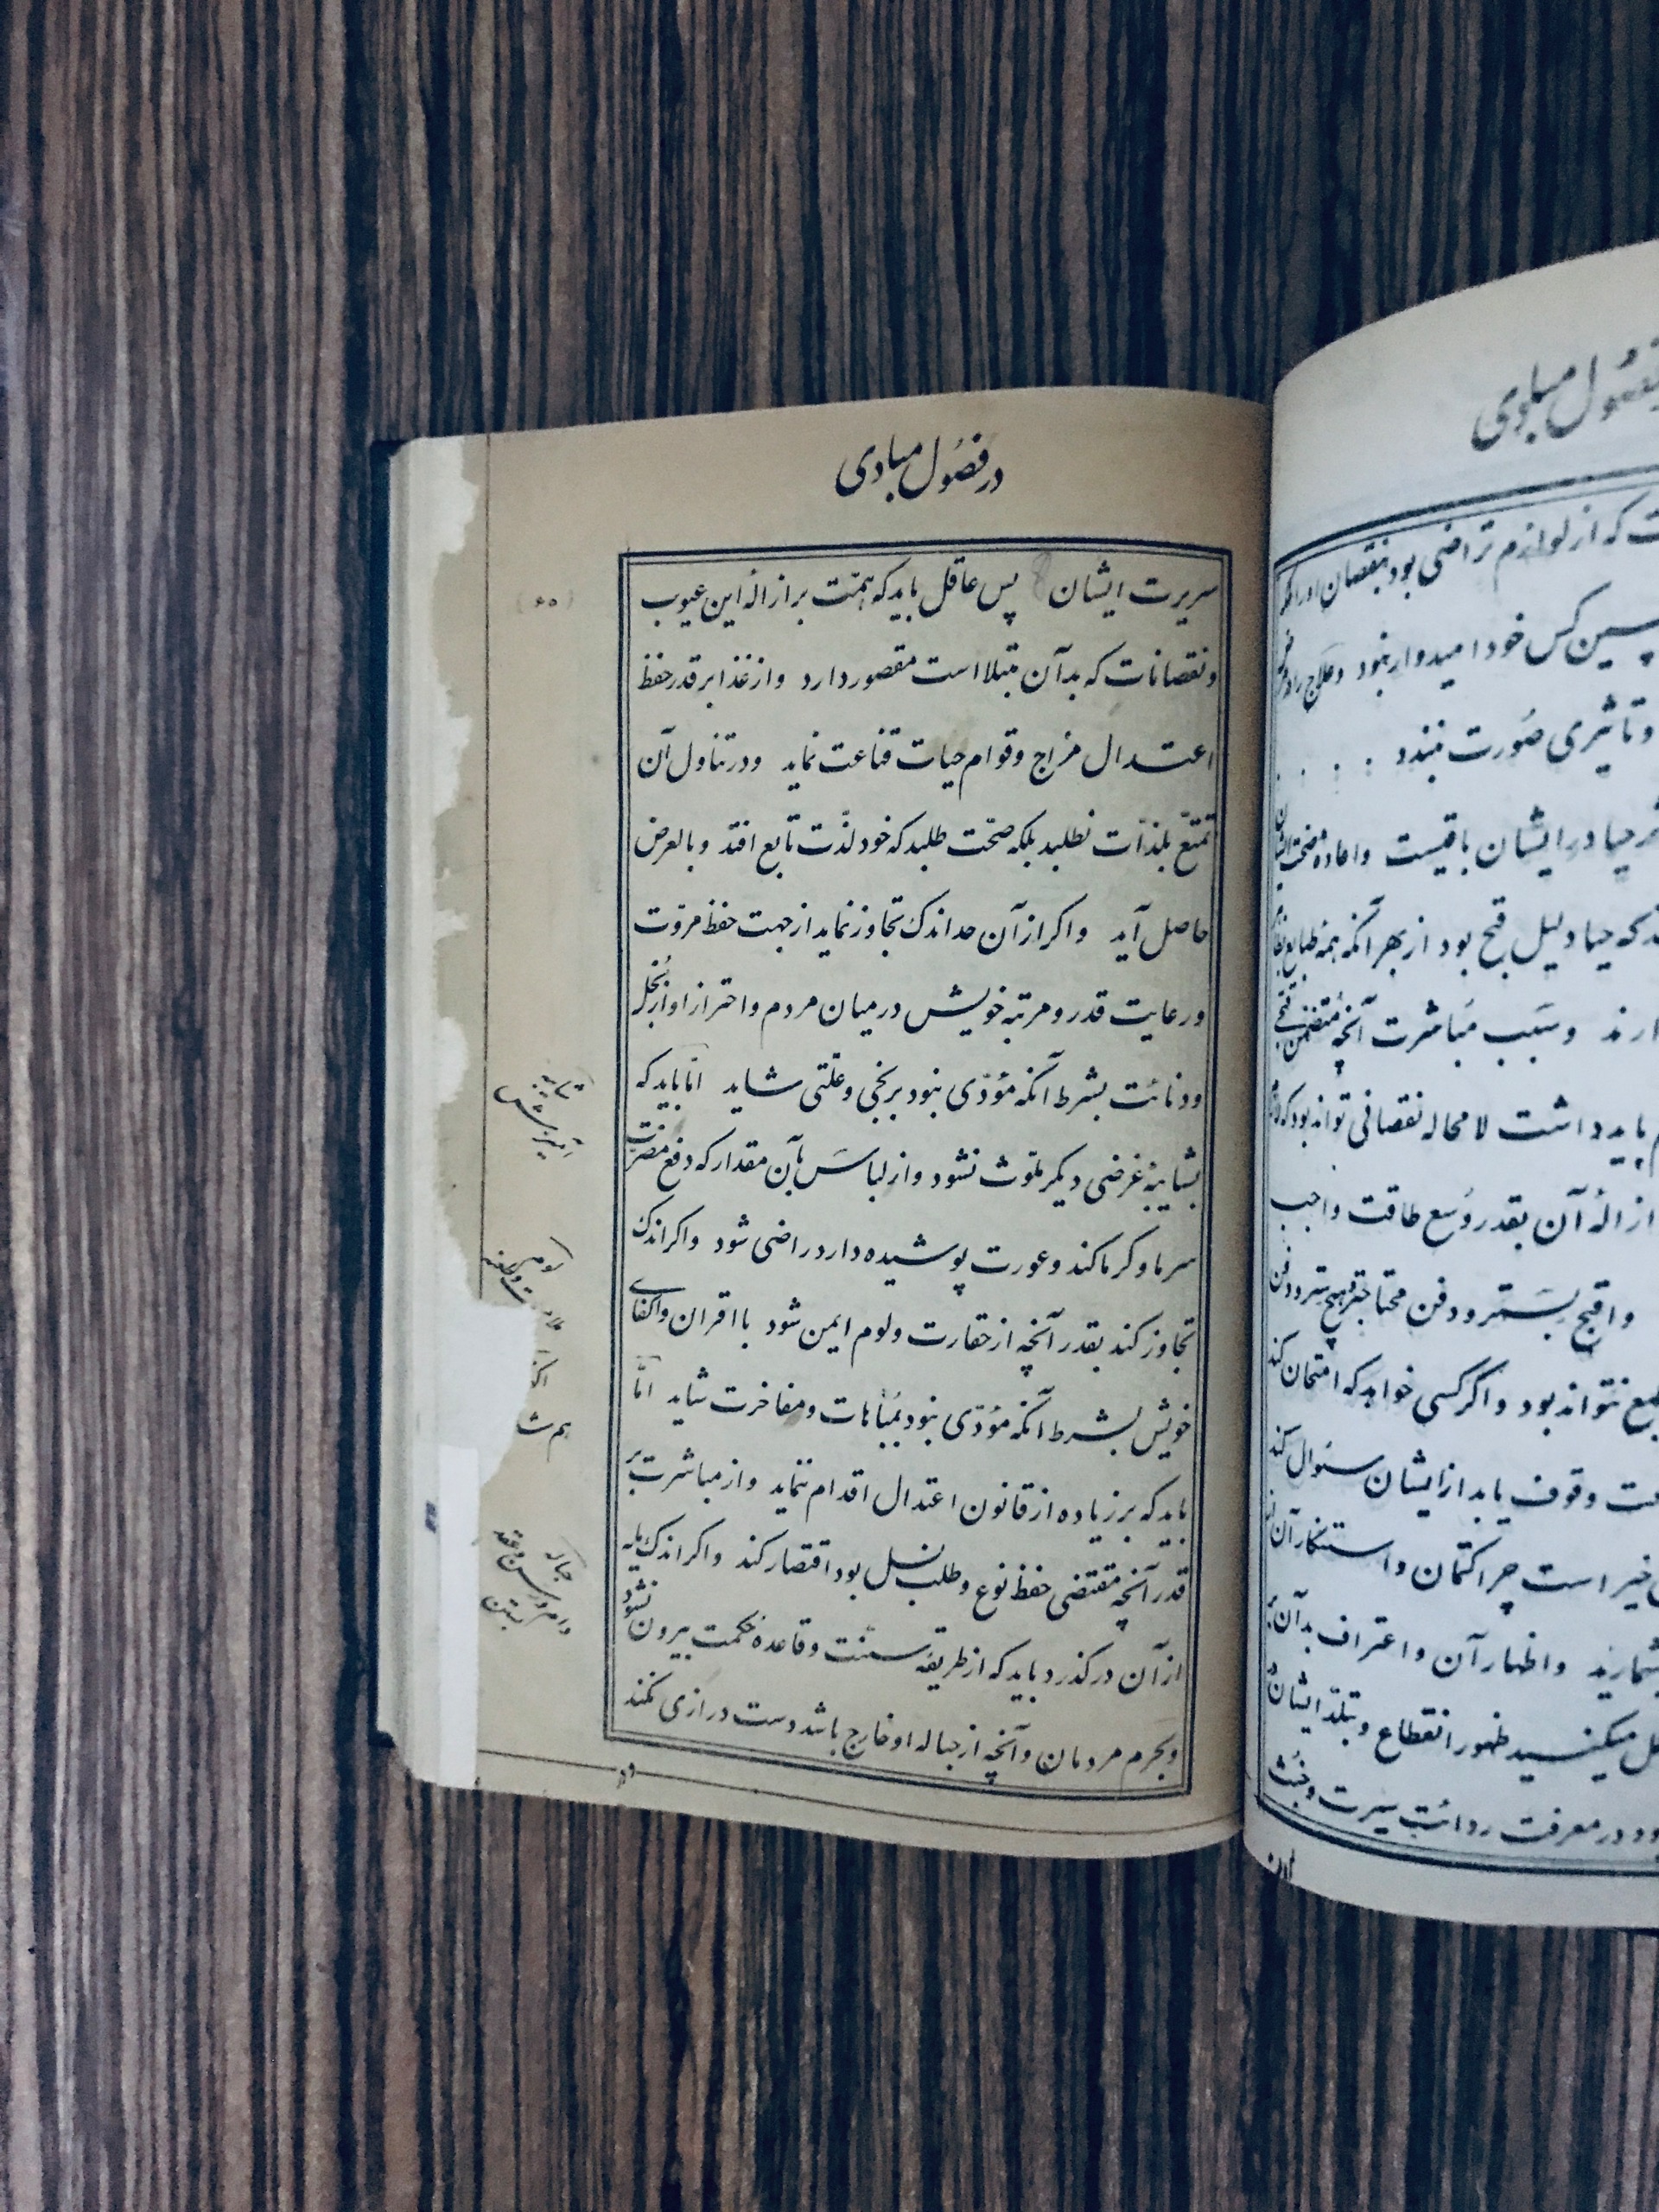 در فصول مبادی
سریرت ایشان پس عاقل باید که همّت بر ازالهٔ این عیوب
و نقصانات که بدآن مبتلا است مقصور دارد و از غذا بر قدر حفظ
اعتدال مزاج و قوام حیات قناعت نماید و در تناول آن
تمتّع بلذّات نطلبد بلکه صحّت طلبد که خود لذّت تابع افتد و بالعرض
حاصل آید و اکر از آن حد اندک تجاوز نماید از جهت حفظ مروّت
و رعایت قدر و مرتبه خویش در میان مردم و احتراز او از بُخل
و دنائت بشرط آنکه مؤدّی نبود برنجی و علّتی شاید امّا باید که
بشایبهٔ غرضی دیکر ملوّث نشود و از لباسَ بآن مقدار که دفع مضرّت
سرما و کرما کند و عورت پوشیده دارد راضی شود و اکر اندک
تجاوز کند بقدر آنچه از حقارت و لوم ایمن شود با اقران و اکفای
خویش بشرط آنکه مؤدّی نبود بمُباهات و مفاخرت شاید امّا
باید که بر زیاده از قانون اعتدال اقدام ننماید و از مباشرت بر
قدر آنچه مقتضی حفظ نوع و طلب نسل بود اقتصار کند و اکر اندک مایه
از آن درکذرد باید که از طریقهٔ سنّت و قاعدهٔ حکمت بیرون نشود
و بحرم مردمان و آنچه از حباله او خارج باشد دست درازی نکند
(۶۵)
شایبه
آمیزش
لوم
هم
حباله
دام و
بستن
۵۹
فصول مبادی
که از لوازم تراضی بود بنقصان او را
کس خود امیدوار نبود و علاج را در
و تاثیری صُورت نبندد
حیا در ایشان باقیست و اعاده
که حیا دلیل قبح بود از بهر آنکه همه طبایع
و سَبب مُباشرت آنچه مُتضمّن قبحی
باید داشت لا محاله نقصانی تواند بود که
ازالهٔ آن بقدر وُسع طاقت واجب
و اقبح بسَتر و دفن محتاجتر هیچ سَتر و دفن
نتواند بود و اکر کسی خواهد که امتحان کند
وقوف یابد از ایشان سئوال کند
خیر است چرا کتمان و استنکار آن
شمارید و اظهار آن و اعتراف بدآن
میکنید ظهور انقطاع و تبلّد ایشان
در معرفت ردائت سیرت و خُبث